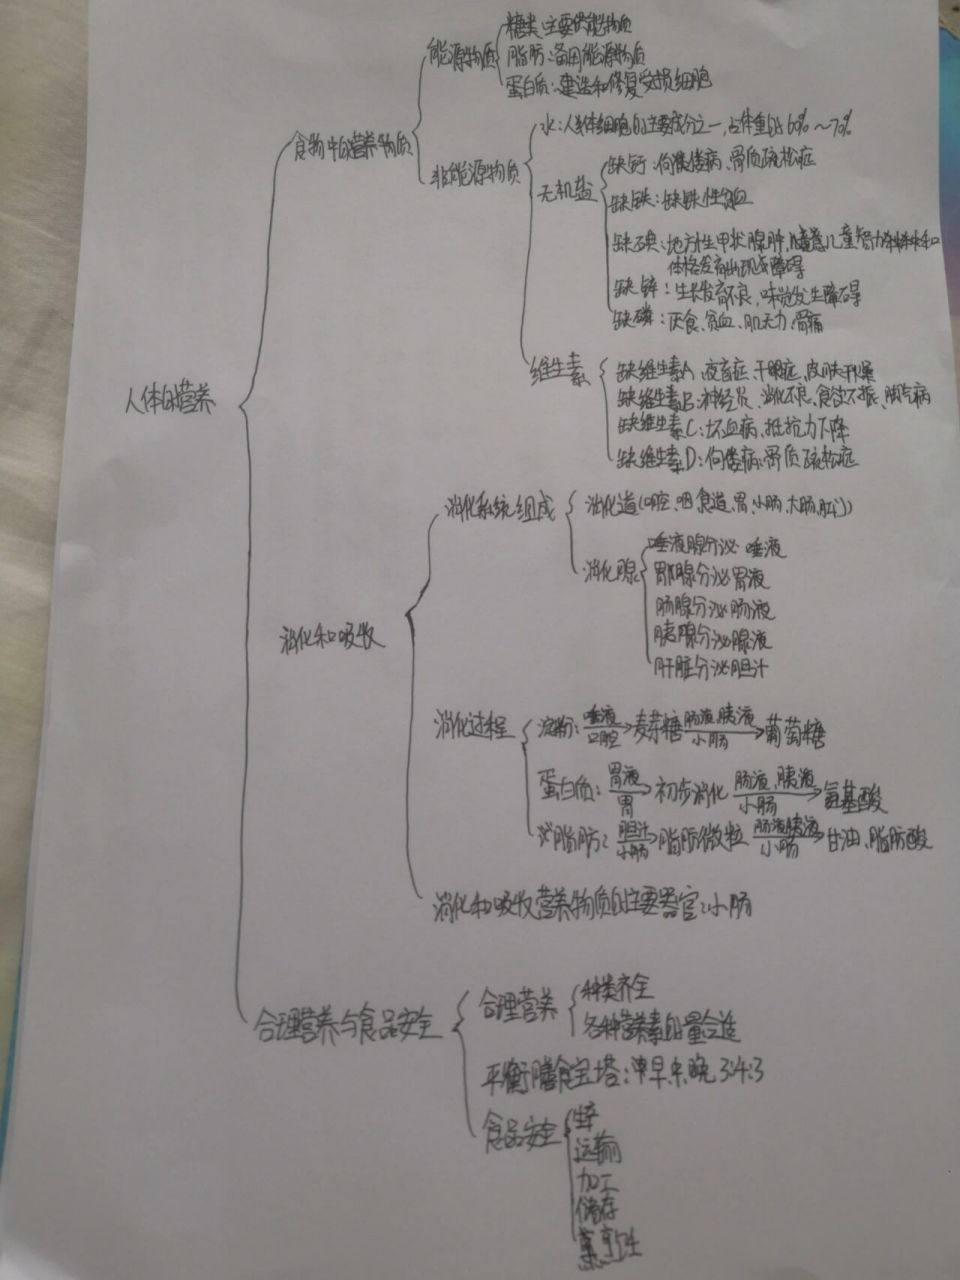 糖类:主要供能物质
能源物质
脂肪:备用能源物质
蛋白质:建造和修复受损细胞
食物中的营养物质
水:人体细胞的主要成分之一,占体重的60%~70%
非能源物质
无机盐
缺钙:佝偻病、骨质疏松症
缺铁:缺铁性贫血
缺碘:地方性甲状腺肿、儿童智力和
体格发育出现障碍
缺锌:生长发育不良,味觉发生障碍
缺磷:厌食、贫血、肌无力、骨痛
维生素
缺维生素A:夜盲症、干眼症、皮肤干燥
缺维生素B:神经炎、消化不良、食欲不振、脚气病
缺维生素C:坏血病、抵抗力下降
缺维生素D:佝偻病、骨质疏松症
人体的营养
消化系统组成
消化道(口腔、咽、食道、胃、小肠、大肠、肛门)
消化腺
唾液腺分泌唾液
胃腺分泌胃液
肠腺分泌肠液
胰腺分泌腺液
肝脏分泌胆汁
消化和吸收
消化过程
淀粉: 唾液 口腔 麦芽糖 肠液、胰液 小肠 葡萄糖
蛋白质: 胃液 胃 初步消化 肠液、胰液 小肠 氨基酸
脂肪: 胆汁 小肠 脂肪微粒 肠液胰液 小肠 甘油、脂肪酸
消化和吸收营养物质的主要器官:小肠
合理营养与食品安全
合理营养
种类齐全
各种营养素的量合适
平衡膳食宝塔:早、中、晚 3:4:3
食品安全
生产
运输
加工
储存
烹饪